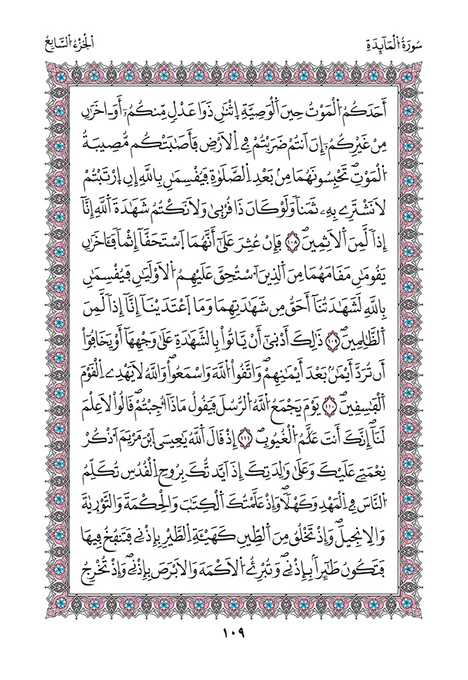 سُورَةُ الْمَآئِدَةِ
اَلْجُزْءُ السَّابِعُ
أَحَدَكُمُ الْمَوْتُ حِينَ الْوَصِيَّةِ اِثْنَٰنِ ذَوَا عَدْلٖ مِّنكُمُۥٓ أَوَ اٰخَرَٰنِ
مِنْ غَيْرِكُمُۥٓ إِنَ اَنتُمْ ضَرَبْتُمْ فِے اِلَارْضِ فَأَصَٰبَتْكُم مُّصِيبَةُ
الْمَوْتِۖ تَحْبِسُونَهُمَا مِنۢ بَعْدِ الصَّلَوٰةِ فَيُقْسِمَٰنِ بِاللَّهِ إِنِ اِرْتَبْتُمْ
لَا نَشْتَرِے بِهِۦ ثَمَناٗ وَلَوْ كَانَ ذَا قُرْب۪يٰ وَلَا نَكْتُمُ شَهَٰدَةَ اَللَّهِ إِنَّآ
إِذاٗ لَّمِنَ اَلَاثِمِينَۖ ١٠٨ فَإِنْ عُثِرَ عَلَيٰٓ أَنَّهُمَا اَسْتَحَقَّآ إِثْماٗ فَـَٔاخَرَٰنِ
يَقُومَٰنِ مَقَامَهُمَا مِنَ اَلذِينَ اَسْتُحِقَّ عَلَيْهِمُ اُلَاوْلَيَٰنِ فَيُقْسِمَٰنِ
بِاللَّهِ لَشَهَٰدَتُنَآ أَحَقُّ مِن شَهَٰدَتِهِمَا وَمَا اَعْتَدَيْنَآ إِنَّآ إِذاٗ لَّمِنَ
اَلظَّٰلِمِينَۖ ١٠٩ ذَٰلِكَ أَدْن۪يٰٓ أَنْ يَّاتُواْ بِالشَّهَٰدَةِ عَلَيٰ وَجْهِهَآ أَوْ يَخَافُوٓاْ
أَن تُرَدَّ أَيْمَٰنُۢ بَعْدَ أَيْمَٰنِهِمْۖ وَاتَّقُواْ اُللَّهَ وَاسْمَعُواْۖ وَاللَّهُ لَا يَهْدِے اِلْقَوْمَ
اَلْفَٰسِقِينَۖ ١١٠ يَوْمَ يَجْمَعُ اُللَّهُ الرُّسُلَ فَيَقُولُ مَاذَآ أُجِبْتُمْۖ قَالُواْ لَا عِلْمَ
لَنَآۖ إِنَّكَ أَنتَ عَلَّٰمُ اُلْغُيُوبِۖ ١١١ إِذْ قَالَ اَللَّهُ يَٰعِيسَي اَبْنَ مَرْيَمَ اَذْكُرْ
نِعْمَتِے عَلَيْكَ وَعَلَيٰ وَٰلِدَتِكَ إِذَ اَيَّدتُّكَ بِرُوحِ اِلْقُدُسِ تُكَلِّمُ
النَّاسَ فِے اِلْمَهْدِ وَكَهْلاٗۖ وَإِذْ عَلَّمْتُكَ اَلْكِتَٰبَ وَالْحِكْمَةَ وَالتَّوْر۪يٰةَ
وَالِانجِيلَۖ وَإِذْ تَخْلُقُ مِنَ اَلطِّينِ كَهَيْـَٔةِ اِلطَّيْرِ بِإِذْنِے فَتَنفُخُ فِيهَا
فَتَكُونُ طَٰٓئِراَۢ بِإِذْنِےۖ وَتُبْرِۓُ اُلَاكْمَهَ وَالَابْرَصَ بِإِذْنِےۖ وَإِذْ تُخْرِجُ
١٠٩